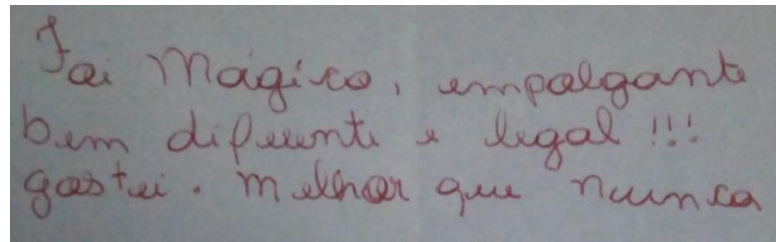 Foi Mágico, empolgante
bem difeente e legal !!!
gostei. melhor que nunca